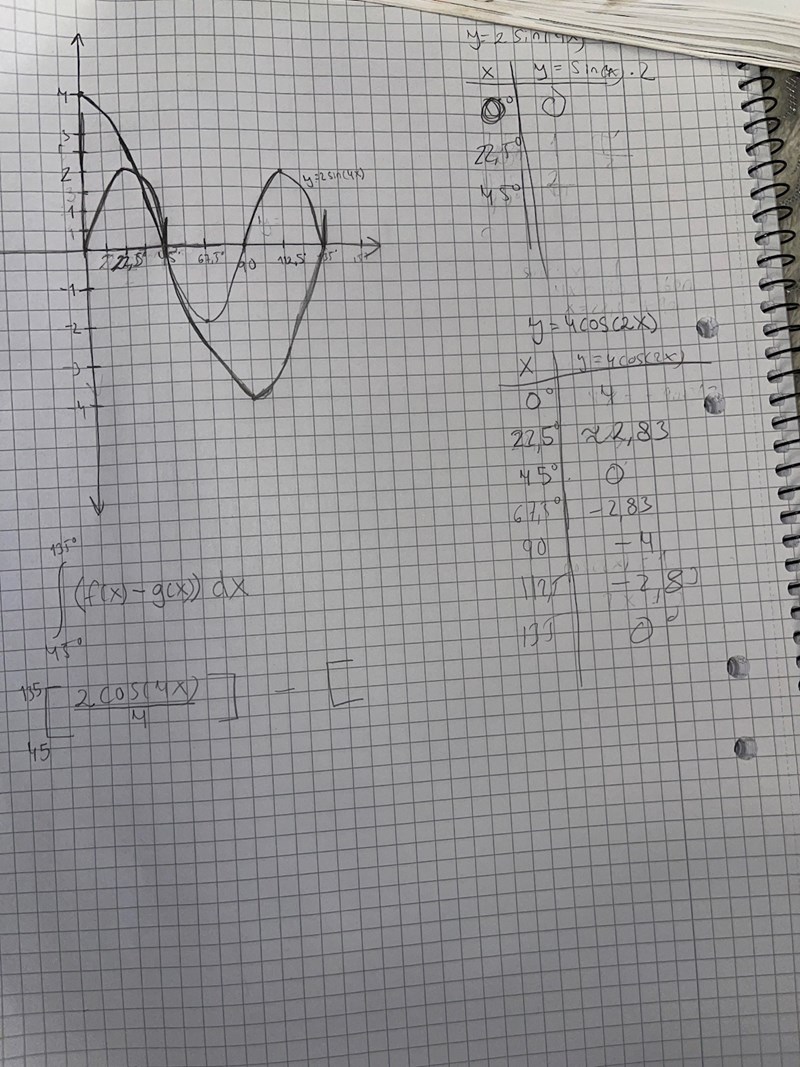 y=2 sin(4x)
x y = sin(4x) · 2
0° 0
22,5°
45°
4
3
2
1
-1
-2
-3
-4
22,5° 45° 67,5° 90 112,5° 135°
y=2sin(4x)
y=4cos(2x)
x y=4cos(2x)
0° 4
22,5° ≈2,83
45° 0
67,5° -2,83
90 -4
112,5 -2,83
135 0°
135°
∫ (f(x) - g(x)) dx
45°
135 [ 2 cos(4x) ] - [
4
45